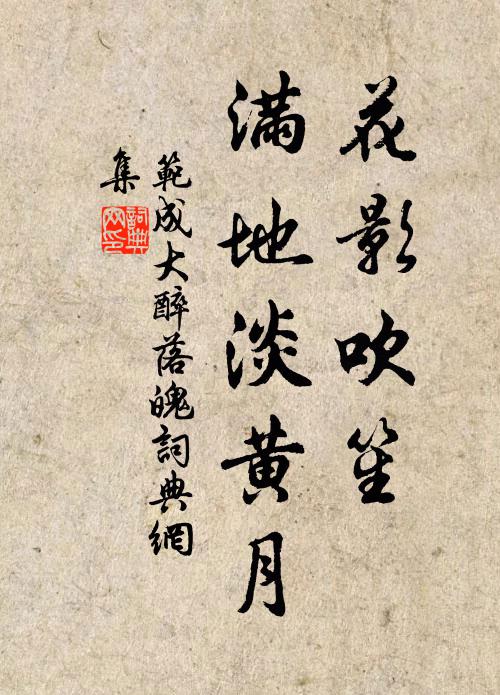 花影吹笙
滿地淡黃月
範成大醉落魄詞典網
集
詞典网印